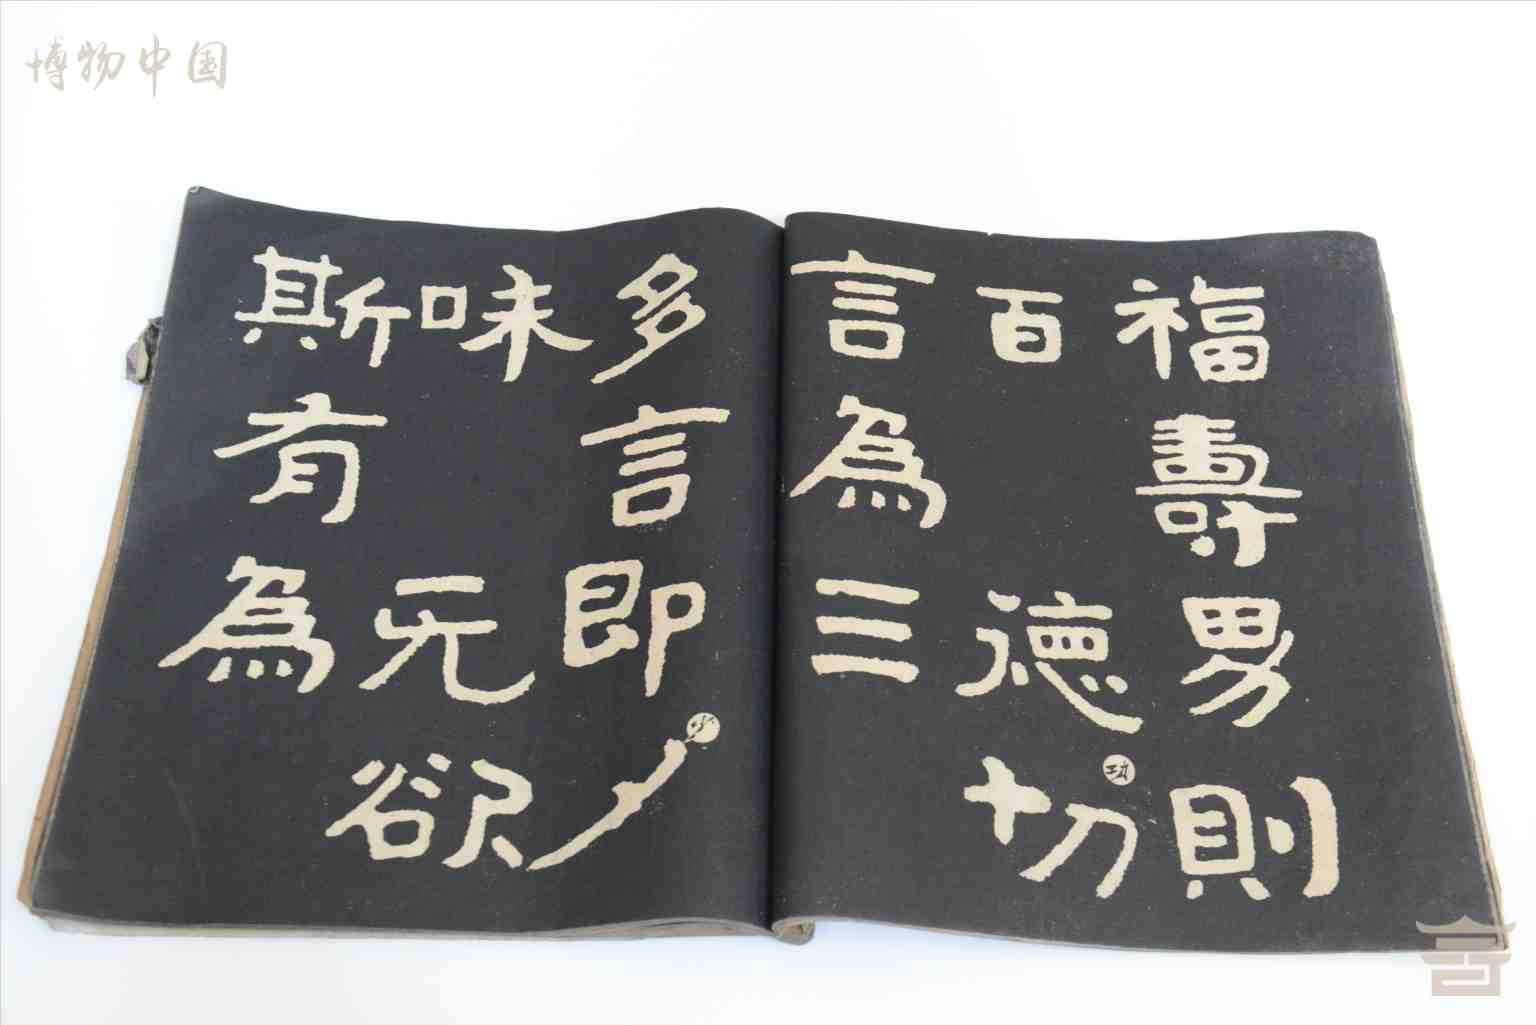 博物中国
福壽男則
百德切
言為三
多言即
味无欲
斯有為